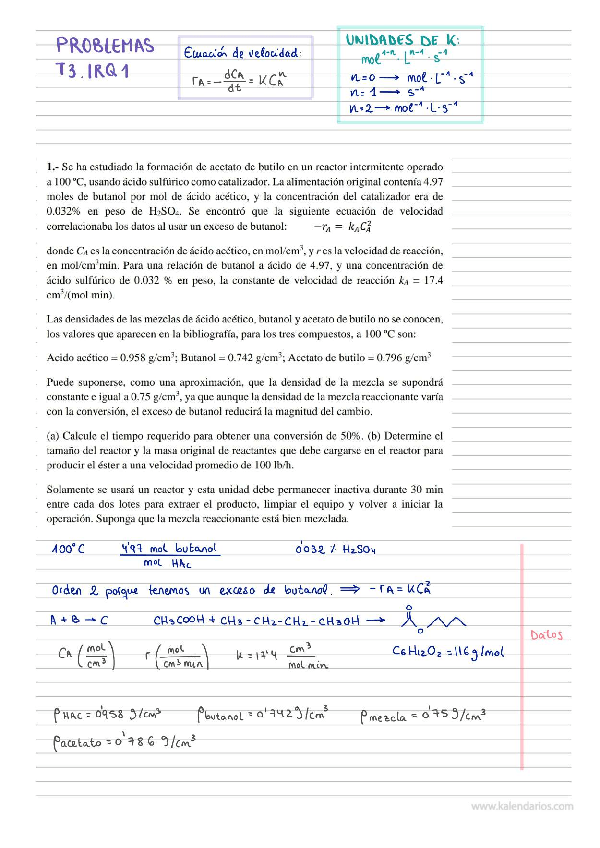 PROBLEMAS
T3.IRQ1
Ecuación de velocidad:
rA = - dCA/dt = K CA^n
UNIDADES DE K:
mol^1-n · L^n-1 · s^-1
n=0 → mol · L^-1 · s^-1
n=1 → s^-1
n=2 → mol^-1 · L · s^-1
1.- Se ha estudiado la formación de acetato de butilo en un reactor intermitente operado
a 100 ºC, usando ácido sulfúrico como catalizador. La alimentación original contenía 4.97
moles de butanol por mol de ácido acético, y la concentración del catalizador era de
0.032% en peso de H2SO4. Se encontró que la siguiente ecuación de velocidad
correlacionaba los datos al usar un exceso de butanol: −rA = kACA²
donde CA es la concentración de ácido acético, en mol/cm³, y r es la velocidad de reacción,
en mol/cm³min. Para una relación de butanol a ácido de 4.97, y una concentración de
ácido sulfúrico de 0.032 % en peso, la constante de velocidad de reacción kA = 17.4
cm³/(mol min).
Las densidades de las mezclas de ácido acético, butanol y acetato de butilo no se conocen,
los valores que aparecen en la bibliografía, para los tres compuestos, a 100 ºC son:
Acido acético = 0.958 g/cm³; Butanol = 0.742 g/cm³; Acetato de butilo = 0.796 g/cm³
Puede suponerse, como una aproximación, que la densidad de la mezcla se supondrá
constante e igual a 0.75 g/cm³, ya que aunque la densidad de la mezcla reaccionante varía
con la conversión, el exceso de butanol reducirá la magnitud del cambio.
(a) Calcule el tiempo requerido para obtener una conversión de 50%. (b) Determine el
tamaño del reactor y la masa original de reactantes que debe cargarse en el reactor para
producir el éster a una velocidad promedio de 100 lb/h.
Solamente se usará un reactor y esta unidad debe permanecer inactiva durante 30 min
entre cada dos lotes para extraer el producto, limpiar el equipo y volver a iniciar la
operación. Suponga que la mezcla reaccionante está bien mezclada.
100°C 4'97 mol butanol / mol HAc 0'032 % H2SO4
Orden 2 porque tenemos un exceso de butanol. ⟹ -rA = KCA²
A + B → C CH3COOH + CH3-CH2-CH2-CH3OH → O O
Datos
CA (mol/cm³) r (mol/cm³ min) K = 17'4 cm³/mol min C6H12O2 = 116 g/mol
ρHAC = 0'958 g/cm³ ρbutanol = 0'742 g/cm³ ρmezcla = 0'75 g/cm³
ρacetato = 0'786 g/cm³
www.kalendarios.com